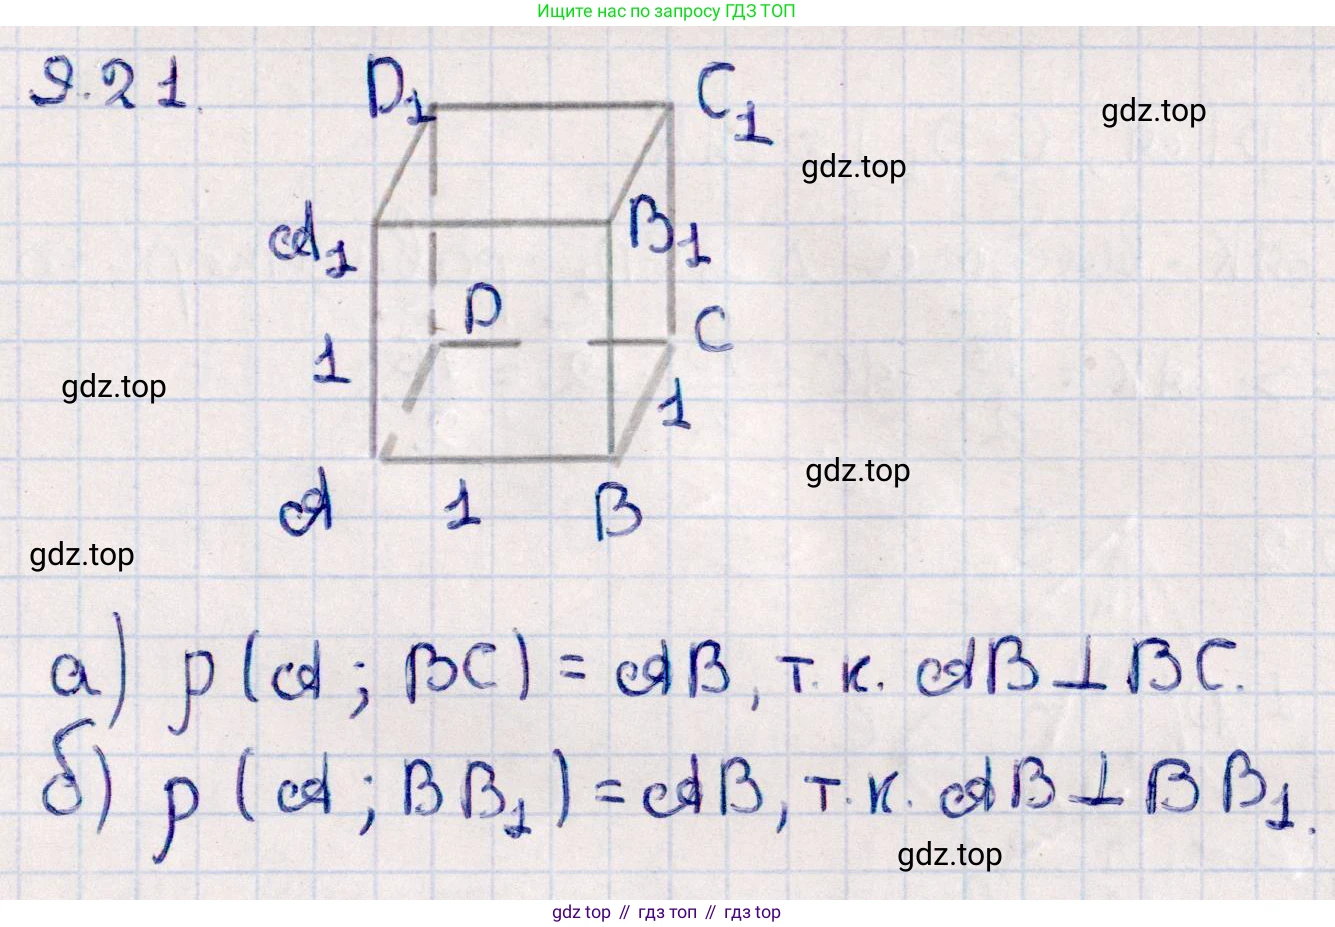 Ищите нас по запросу ГДЗ ТОП
9.21.
D₁
C₁
gdz.top
gdz.top
A₁
B₁
D
C
1
gdz.top
1
gdz.top
A
1
B
gdz.top
а) ρ(A; BC) = AB, т.к. AB⊥BC.
б) ρ(A; BB₁) = AB, т.к. AB⊥BB₁.
gdz.top
gdz top // гдз топ // гдз top